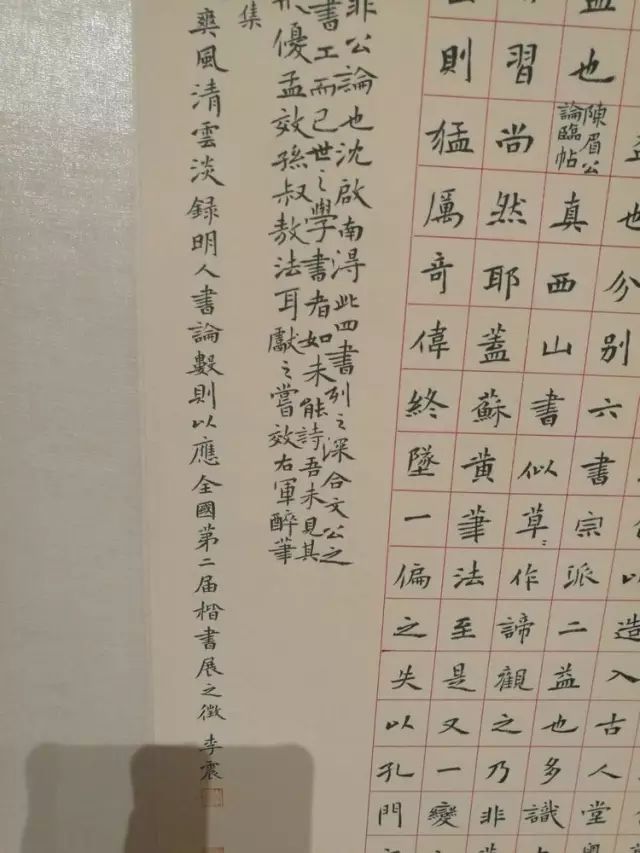 以造入古人堂
也分别六書宗派二益也多識
益也陳眉公論臨帖真西山書似草〻作諦觀之乃非
習尚然耶蓋蘇黃筆法至是又一變
則猛厲奇偉終墜一偏之失以孔門
非公論也沈啟南得此四書列之深合文公之
書工而已世之學書者如未能詩吾未見其
優孟效孫叔敖法耳獻之嘗效右軍醉筆
集
爽風清雲淡録明人書論數則以應全國第二届楷書展之徵 李震